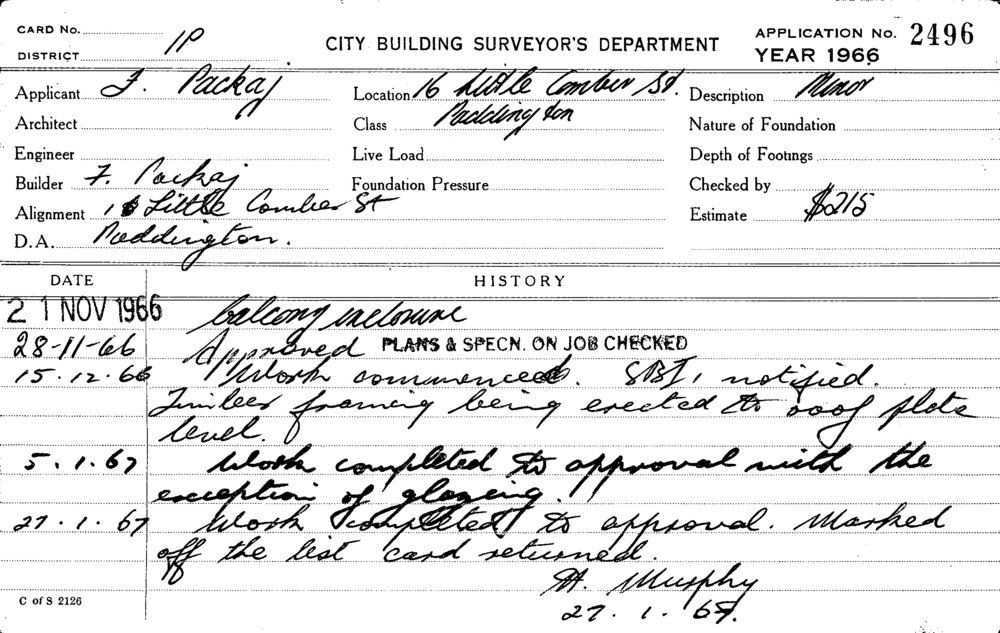 CARD No. APPLICATION No. 2496
DISTRICT 1P CITY BUILDING SURVEYOR'S DEPARTMENT YEAR 1966
Applicant F. Packaj Location 16 Little Comber St. Description Minor
Architect Class Paddington Nature of Foundation
Engineer Live Load Depth of Footings
Builder F. Packaj Foundation Pressure Checked by
Alignment 16 Little Comber St Estimate $215
D.A. Paddington.
DATE HISTORY
21 NOV 1966 balcony enclosure
28-11-66 Approved PLANS & SPECN. ON JOB CHECKED
15.12.66 Work commenced. SBI, notified.
Timber framing being erected to roof plate
level.
5.1.67 Work completed to approval with the
exception of glazing.
27.1.67 Work completed to approval. Marked
off the list card returned.
H. Murphy
27.1.67.
C of S 2126